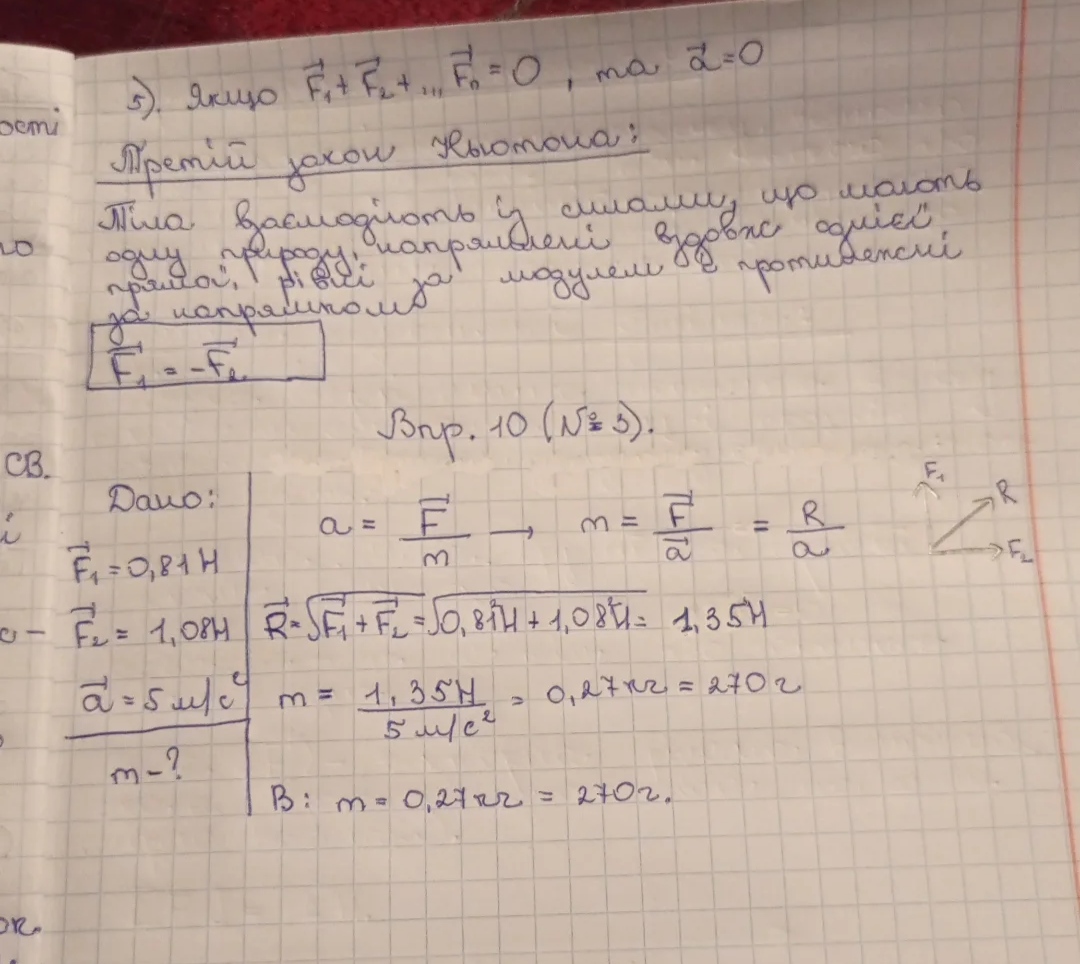 5). Якщо F⃗₁+F⃗₂+...F⃗ₙ=0, та a⃗=0
ості
Третій закон Ньютона:
Тіла взаємодіють із силами, що мають
одну природу, напрямлені вздовж однієї
прямої, рівні за модулем і протилежні
за напрямком
F⃗₁ = -F⃗₂
Впр. 10 (№ 3).
СВ.
Дано:
F⃗₁ = 0,81 Н
F⃗₂ = 1,08Н
a⃗ = 5 м/с²
m - ?
a = F⃗/m → m = F⃗/a⃗ = R/a
R⃗ = √(F⃗₁ + F⃗₂) = √(0,81²Н + 1,08²Н) = 1,35Н
m = 1,35Н/5 м/с² = 0,27кг = 270 г
В: m = 0,27кг = 270г.
F₁
R
F₂